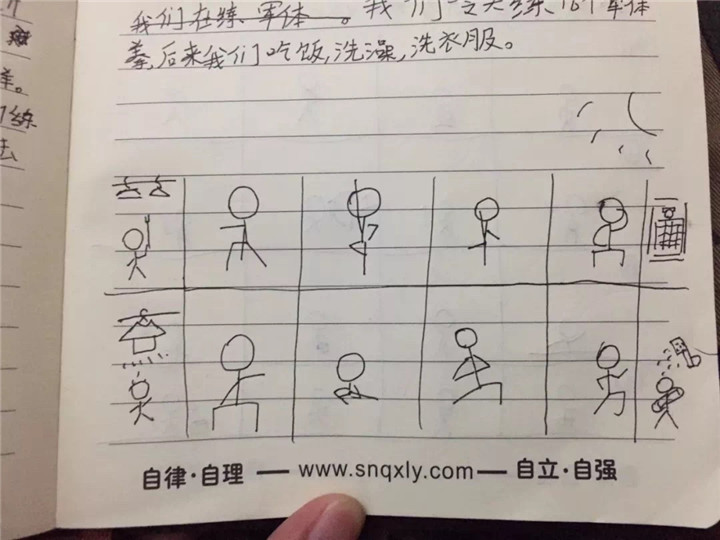 我们在练、军体 。我们今天练、16个军体
拳,后来我们吃饭,洗澡,洗衣服。
练
去
自律·自理 — www.snqxly.com — 自立·自强